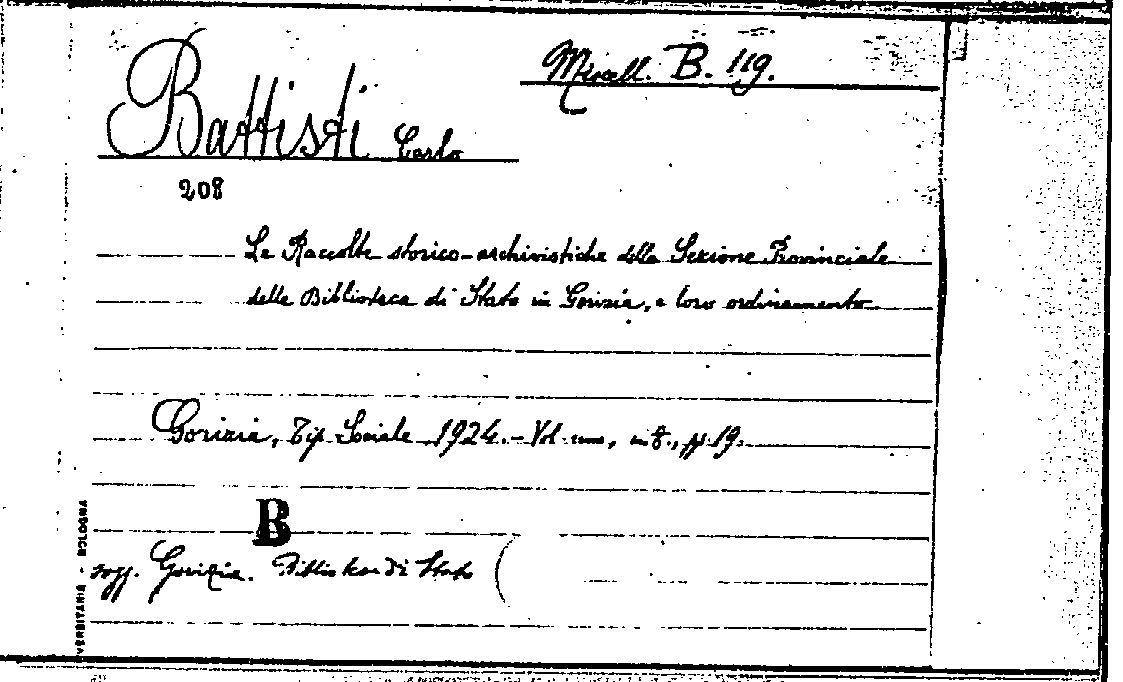 Miscell. B. 119.
Battisti Carlo
208
Le Raccolte storico-archivistiche della Sezione Provinciale
della Biblioteca di Stato in Gorizia, e loro ordinamento
Gorizia, Tip. Sociale 1924. - Vol. uno, in 8., pp. 19.
B
sogg. Gorizia. Biblioteca di Stato (
BOLOGNA